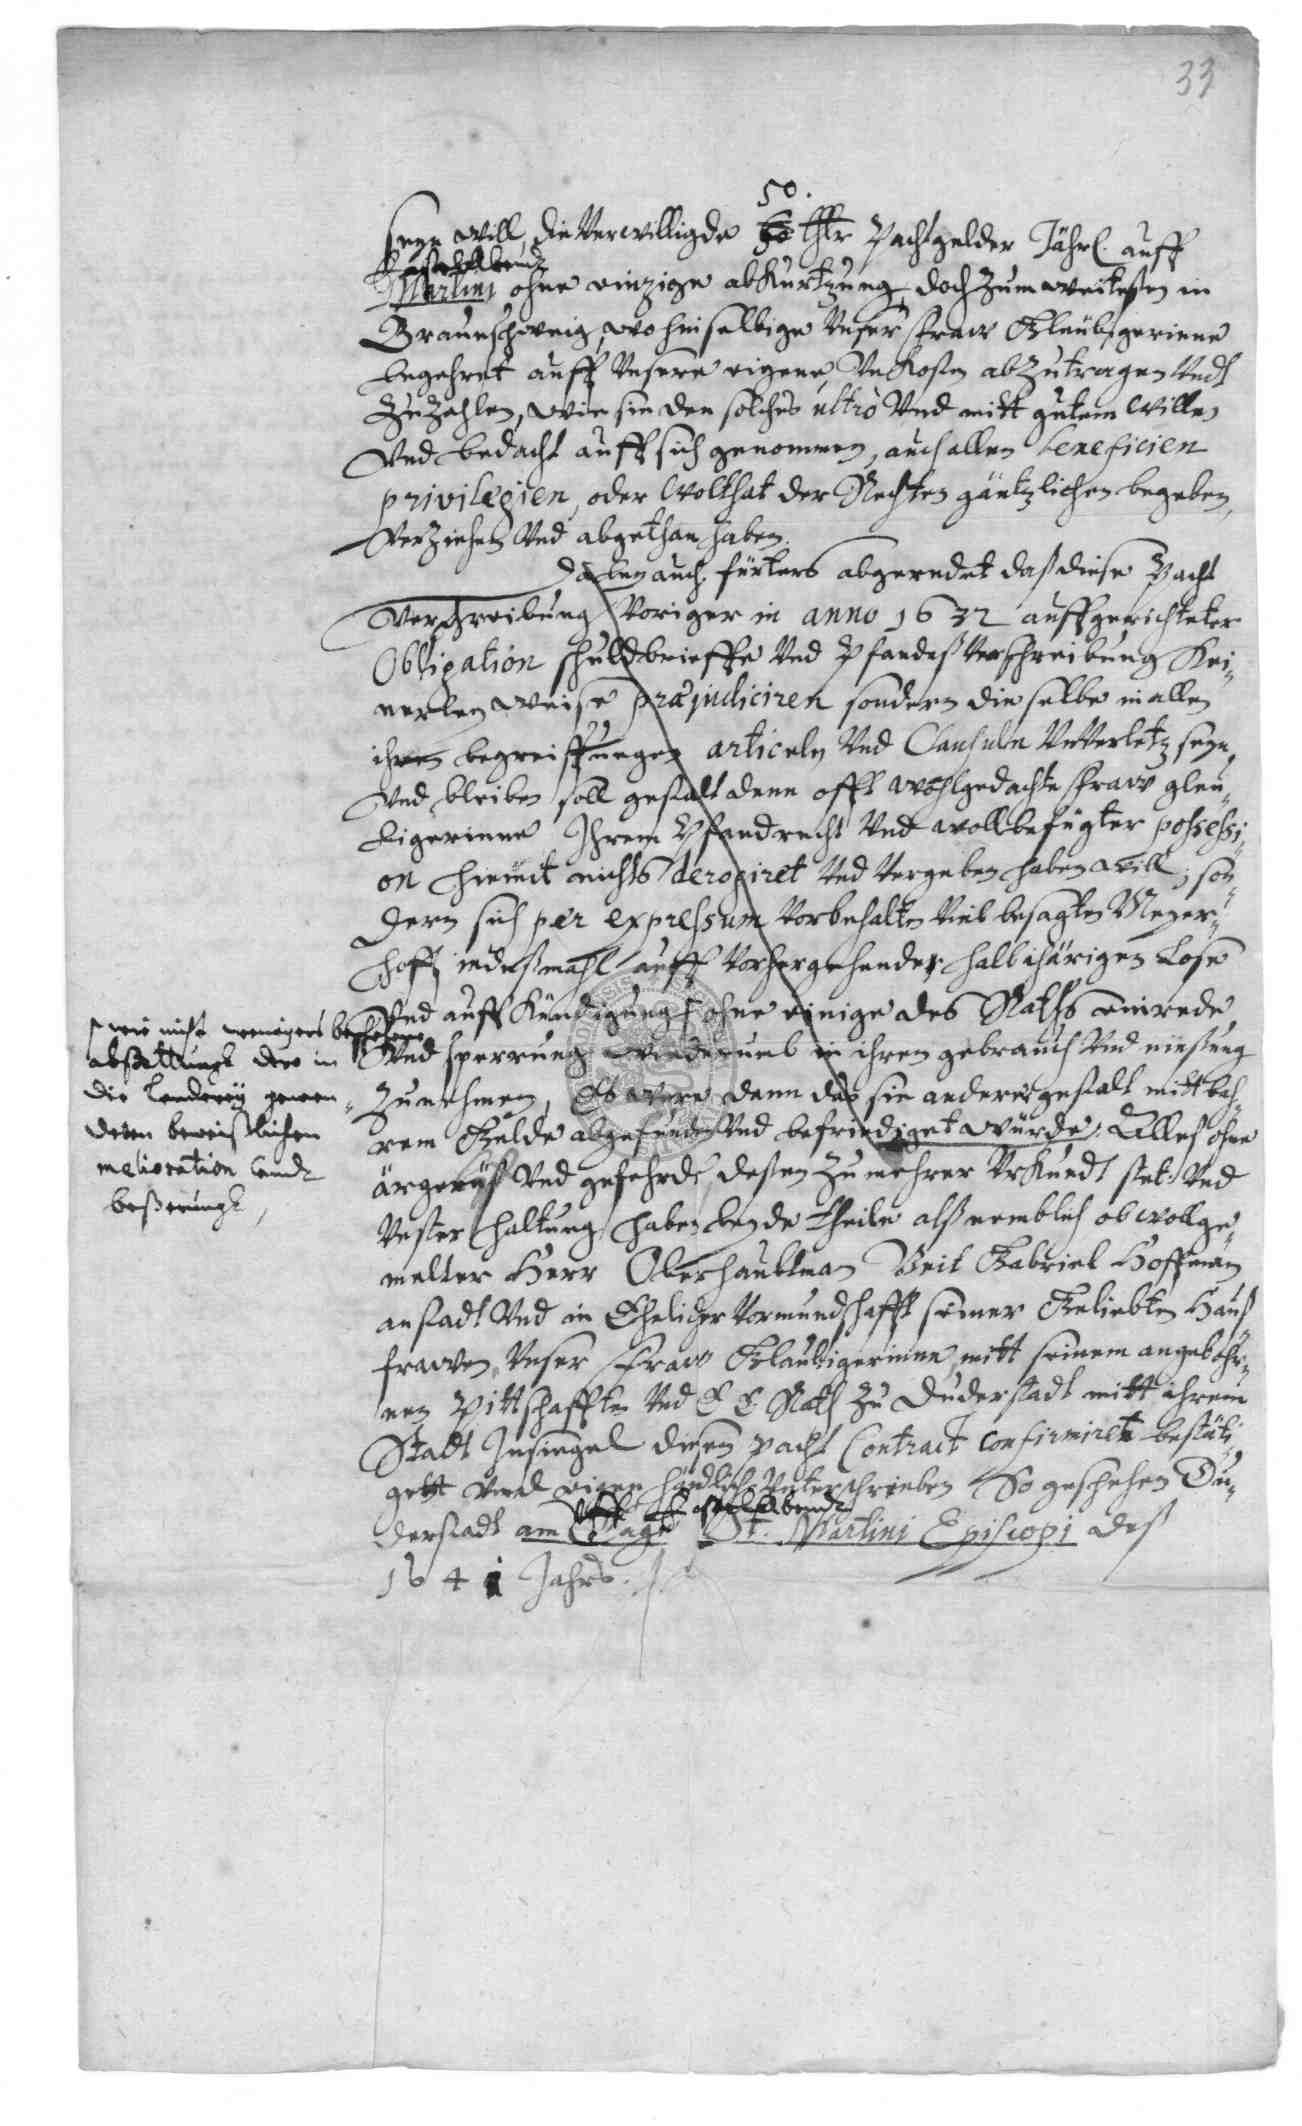 33
50.
seyn will, die Verwilligde 60 thlr Pachtgelder Jährl. auff
Martini ohne einzige abKurtzung, doch Zum weitesten in
Braunschweig, wohin selbige Unser fraw Gleubigerinne
begehret auff Unsere eigene UnKosten abzutragen Undt
Zu Zahlen, wie sie den solches ultrò Und mitt gutem willen
Und bedacht auff sich genommen, auch allen beneficien
privilegien, oder Wolthat der Rechten gäntzlichen begeben,
Verziehen Und abgethan haben.
Dabey auch fürters abgeredet daß diese Pacht
Verschreibung Voriger in anno 1632 auffgerichteter
Obligation schuldbrieffe Und Pfandeß Verschreibung Kei-
nerley weise præjudiciren sondern die selbe in allen
ihren begreiffungen articuln Und Clausuln UnVerletz seyn
Und bleiben soll gestalt denn offt wohlgedachte fraw gleu-
bigerinne Ihrem Pfandrecht Und wollbefugter possessi-
on hiemit nichts derogiret Und Vergeben haben will, son-
dern sich per expressum Vorbehalten Viel besagten Meyer-
hoff jedeßmahl auff Vorhergehender halb ihärigen Lose
Und auff Kündigung ohne einige des Raths einrede
Und sperrung wiederumb in ihren gebrauch Und niessung
Zu nehmen, Es were dann das sie anderer gestalt mitt bah-
rem Gelde abgefunden Und befriediget würde. Alles ohne
ärgerniß Und gefehrde, dessen Zu mehrer UrKundt stet Und
Vester haltung haben beyde theile alß nemblich obwollge-
melter Herr Oberhaubtman Veit Gabriel Hoffman
anstadt Und in Ehelicher Vormundschafft seiner Geliebten Hauß
frawen, Unser fraw Glaubigerinne, mitt seinem angebohr-
nen Pittschafften Und E E Rath Zu Duderstadt mitt ihrem
Stadt Insiegel diesen pacht Contract confirmiret bestäti-
gett Und eigen händlich Unterschrieben So geschehen Du-
derstadt am Tage St. Martini Episcopi deß
1641 Jahrs.
wie nicht wenigers
abstattung der in
die Länderey gewen-
deten beweißlichen
melioration undt
beßerung,